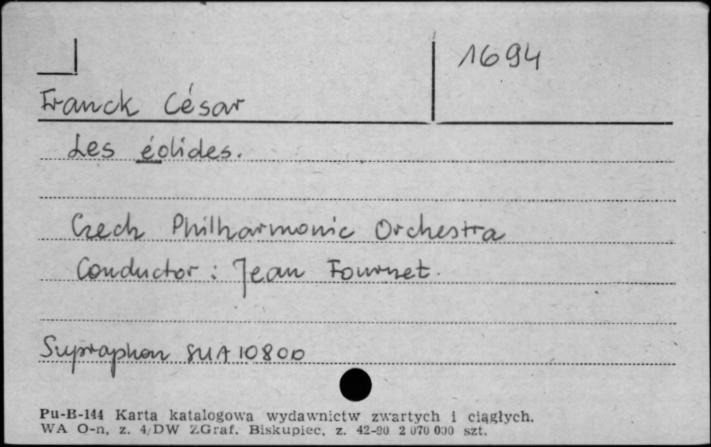 1694
Franck César
Les éolides.
Czech Philharmonic Orchestra
Conductor : Jean Fournet.
Supraphon SUA 10800
Pu-B-144 Karta katalogowa wydawnictw zwartych i ciągłych.
WA O-n, z. 4/DW ZGraf. Biskupiec, z. 42-90 2 070 000 szt.